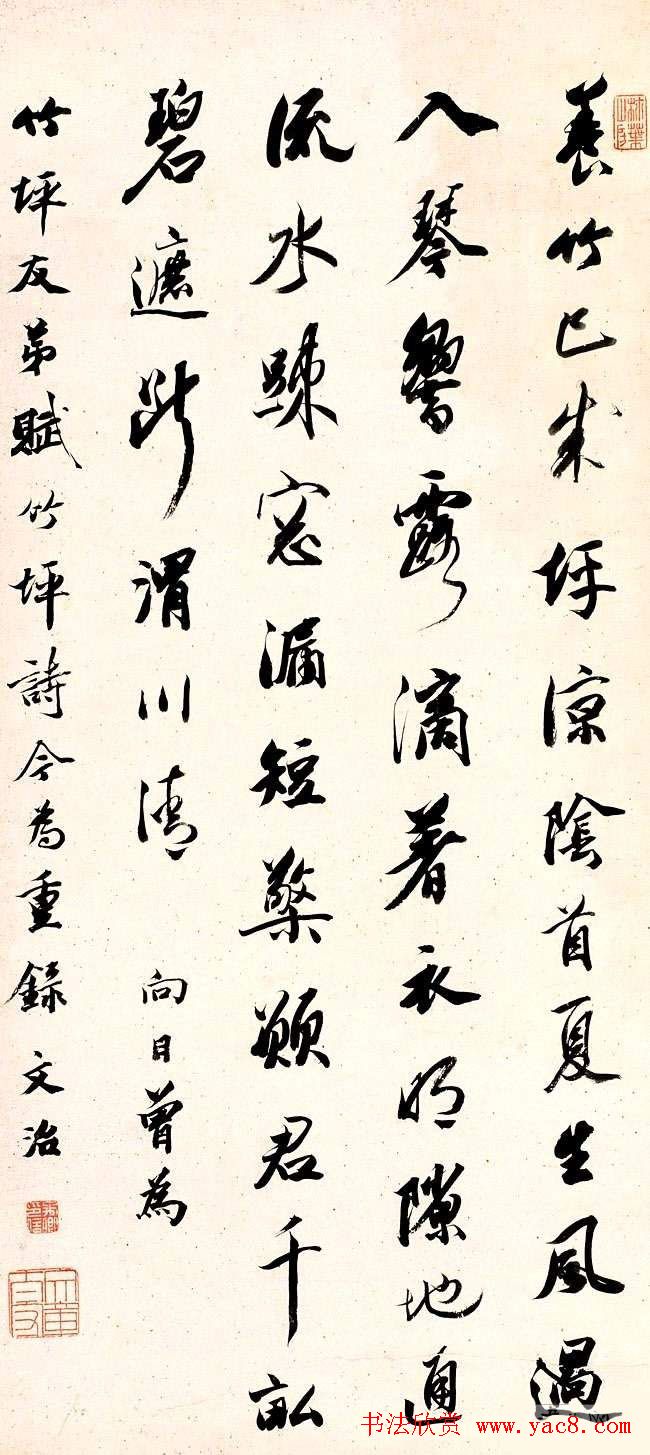 養竹已成坪涼陰首夏生風過
入琴響露滴著衣明隙地通
流水疎窓漏短檠願君千畝
碧遮断渭川清 向日曾為
竹坪友弟賦竹坪詩今為重録 文治
书法欣赏 www.yac8.com